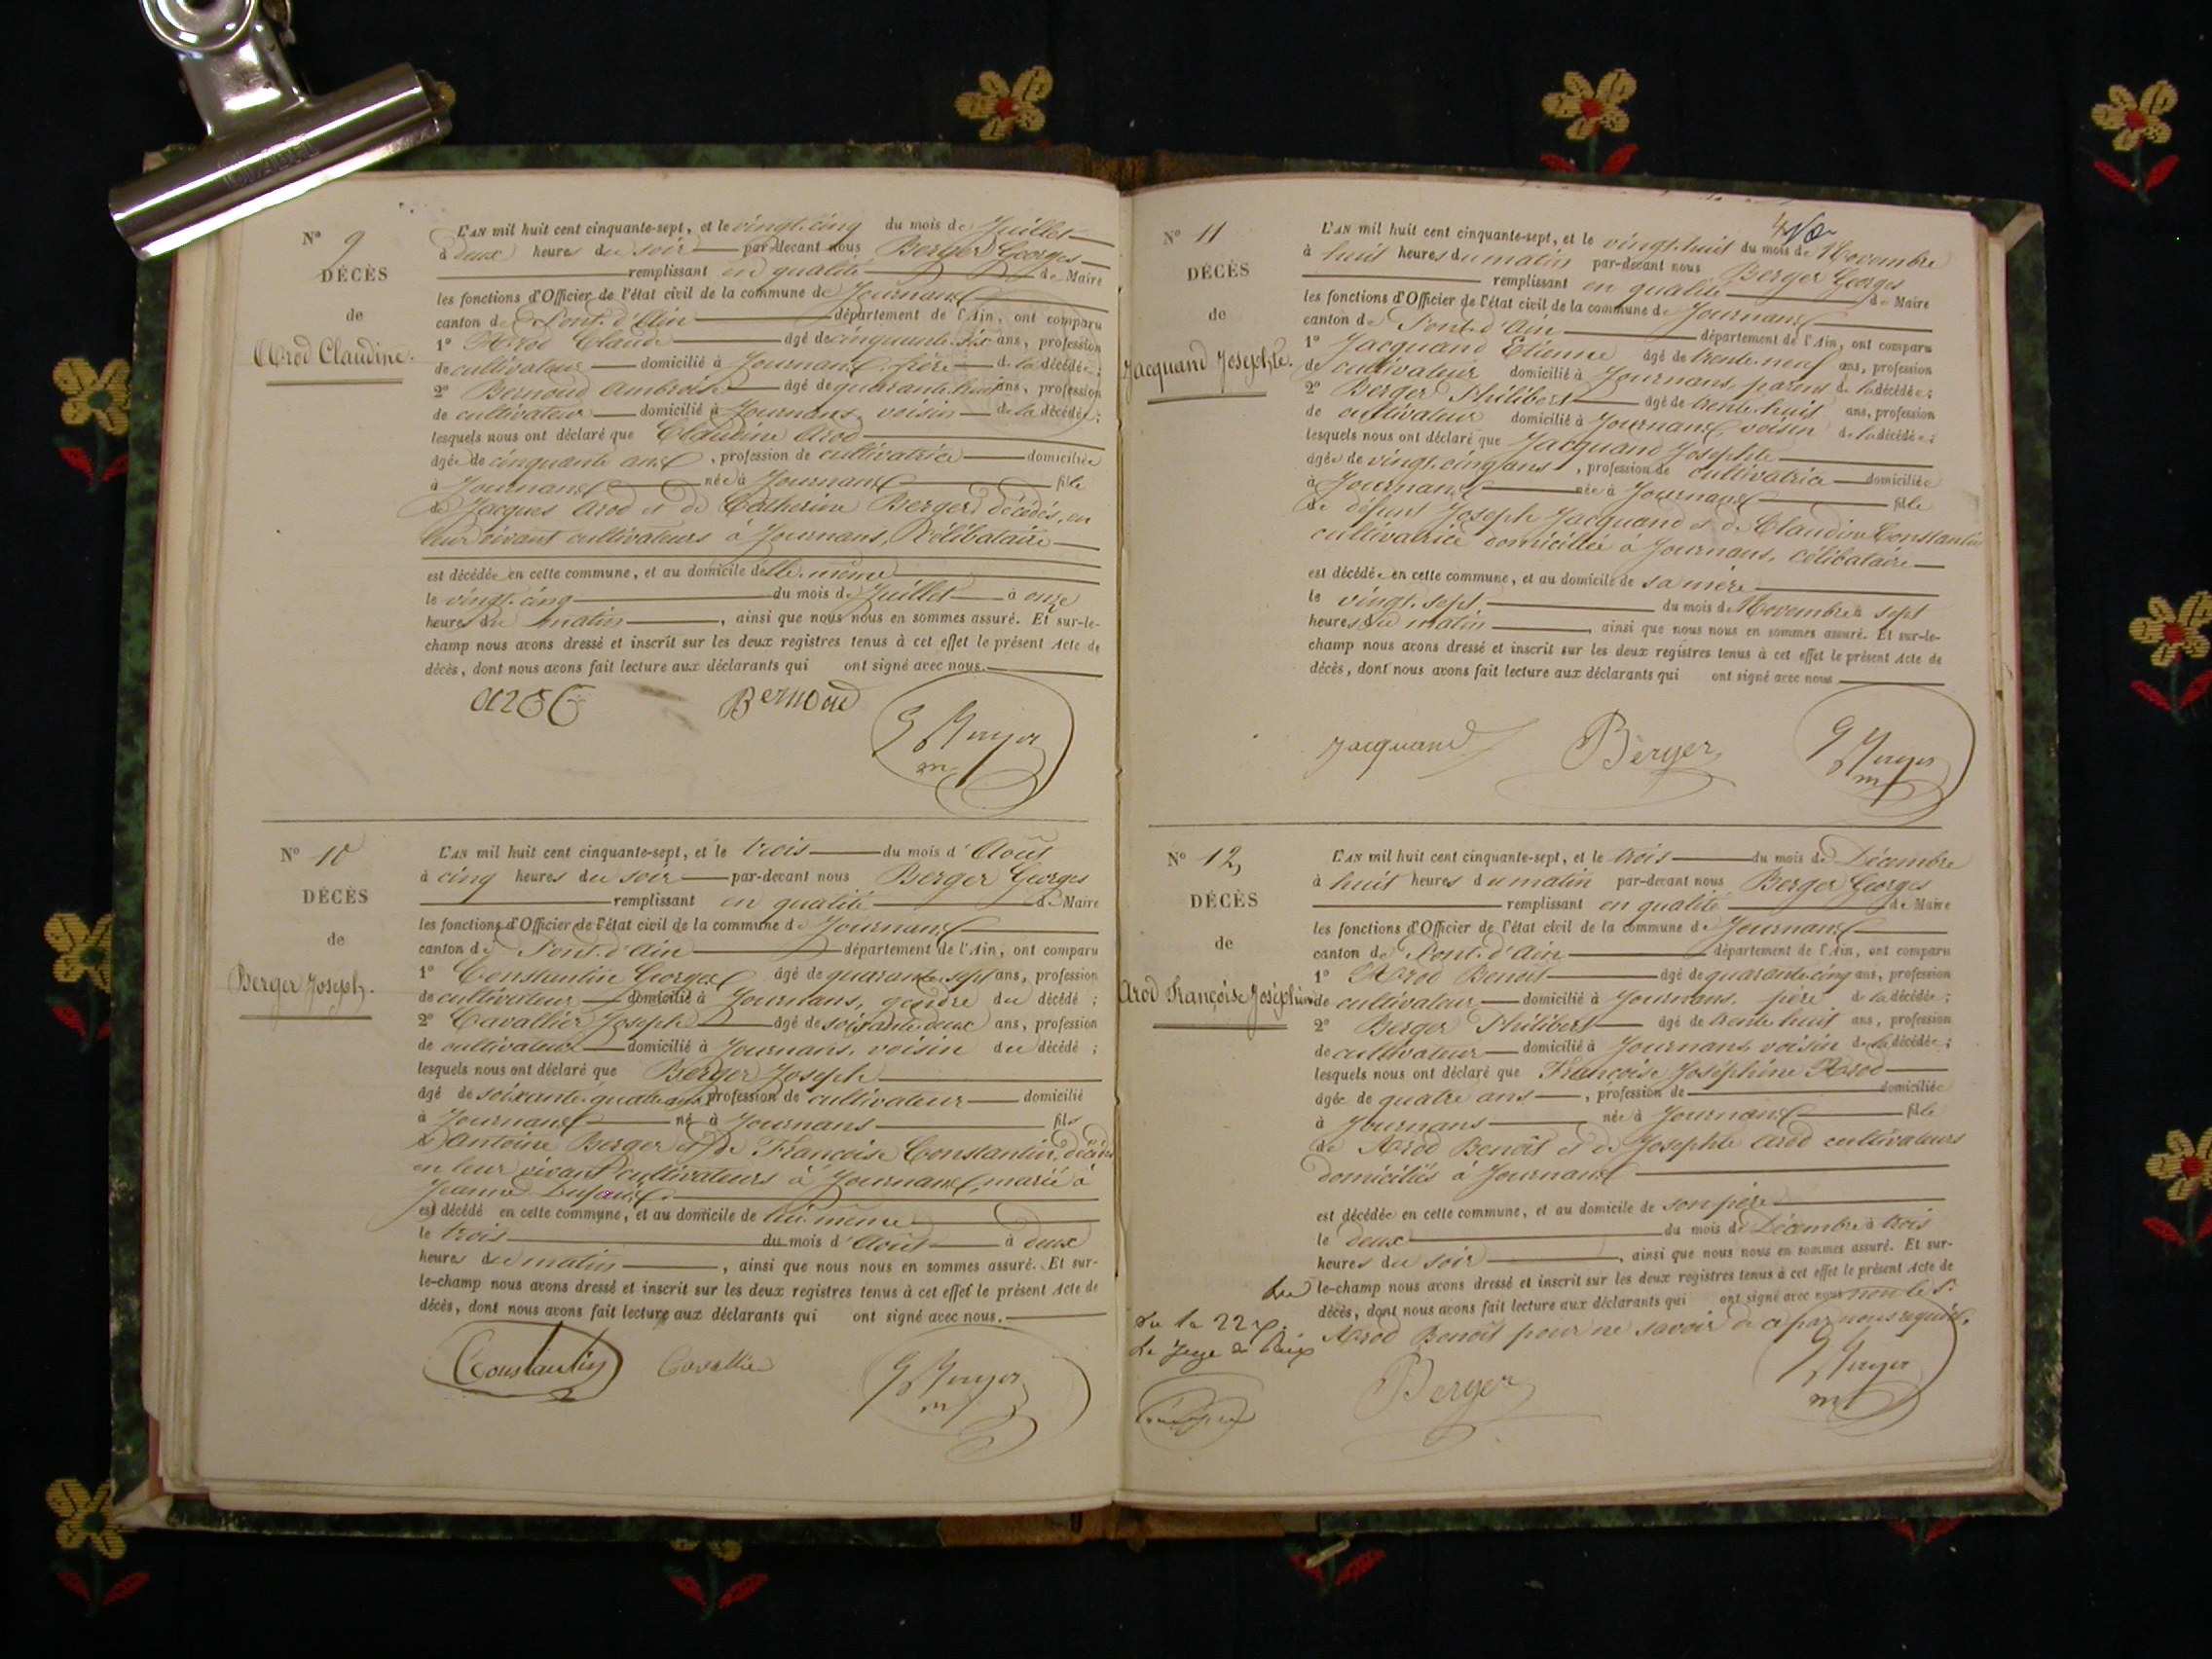 N° 9
DÉCÈS
de
Arod Claudine.
L'AN mil huit cent cinquante-sept, et le vingt-cinq du mois de Juillet
à deux heures du soir par-devant nous Berger Georges
remplissant en qualité de Maire
les fonctions d'Officier de l'état civil de la commune de Journans
canton de Pont-d'Ain département de l'Ain, ont comparu
1° Arod Claude âgé de cinquante-six ans, profession
de cultivateur domicilié à Journans, frère de la décédée;
2° Bernoud Ambroise âgé de quarante-huit ans, profession
de cultivateur domicilié à Journans, voisin de la décédée;
lesquels nous ont déclaré que Claudine Arod
âgée de cinquante ans, profession de cultivatrice domiciliée
à Journans née à Journans fille
de Jacques Arod et de Catherine Berger décédés, en
leur vivant cultivateurs à Journans, Célibataire
est décédée en cette commune, et au domicile d'elle-même
le vingt-cinq du mois de Juillet à onze
heures du matin, ainsi que nous nous en sommes assuré. Et sur-le-
champ nous avons dressé et inscrit sur les deux registres tenus à cet effet le présent Acte de
décès, dont nous avons fait lecture aux déclarants qui ont signé avec nous.
Arod C Bernoud G Berger
m
N° 10
DÉCÈS
de
Berger Joseph.
L'AN mil huit cent cinquante-sept, et le trois du mois d'Août
à cinq heures du soir par-devant nous Berger Georges
remplissant en qualité de Maire
les fonctions d'Officier de l'état civil de la commune de Journans
canton de Pont-d'Ain département de l'Ain, ont comparu
1° Constantin Georges âgé de quarante-sept ans, profession
de cultivateur domicilié à Journans, gendre du décédé;
2° Cavallier Joseph âgé de soixante-deux ans, profession
de cultivateur domicilié à Journans, voisin du décédé;
lesquels nous ont déclaré que Berger Joseph
âgé de soixante-quatre ans, profession de cultivateur domicilié
à Journans né à Journans fils
d'Antoine Berger et de Françoise Constantin, décédés
en leur vivant cultivateurs à Journans, marié à
Jeanne
est décédé en cette commune, et au domicile de lui-même
le trois du mois d'Août à deux
heures du matin, ainsi que nous nous en sommes assuré. Et sur-
le-champ nous avons dressé et inscrit sur les deux registres tenus à cet effet le présent Acte de
décès, dont nous avons fait lecture aux déclarants qui ont signé avec nous.
Constantin Cavallier G Berger
m
N° 11
DÉCÈS
de
Jacquand Josephte.
L'AN mil huit cent cinquante-sept, et le vingt-huit du mois de Novembre
à huit heures du matin par-devant nous Berger Georges
remplissant en qualité de Maire
les fonctions d'Officier de l'état civil de la commune de Journans
canton de Pont-d'Ain département de l'Ain, ont comparu
1° Jacquand Etienne âgé de trente-neuf ans, profession
de cultivateur domicilié à Journans, parent de la décédée;
2° Berger Philibert âgé de trente-huit ans, profession
de cultivateur domicilié à Journans, voisin de la décédée;
lesquels nous ont déclaré que Jacquand Josephte
âgée de vingt-cinq ans, profession de cultivatrice domiciliée
à Journans née à Journans fille
de défunt Joseph Jacquand et de Claudine Constantin
cultivatrice domiciliée à Journans, célibataire
est décédée en cette commune, et au domicile de sa mère
le vingt-sept du mois de Novembre à sept
heures du matin, ainsi que nous nous en sommes assuré. Et sur-le-
champ nous avons dressé et inscrit sur les deux registres tenus à cet effet le présent Acte de
décès, dont nous avons fait lecture aux déclarants qui ont signé avec nous
Jacquand Berger G Berger
m
N° 12
DÉCÈS
de
Arod Françoise Joséphine
L'AN mil huit cent cinquante-sept, et le trois du mois de Décembre
à huit heures du matin par-devant nous Berger Georges
remplissant en qualité de Maire
les fonctions d'Officier de l'état civil de la commune de Journans
canton de Pont-d'Ain département de l'Ain, ont comparu
1° Arod Benoît âgé de quarante-cinq ans, profession
de cultivateur domicilié à Journans, père de la décédée;
2° Berger Philibert âgé de trente-huit ans, profession
de cultivateur domicilié à Journans, voisin de la décédée;
lesquels nous ont déclaré que Françoise Joséphine Arod
âgée de quatre ans, profession de domiciliée
à Journans née à Journans fille
de Arod Benoît et de Josephte Arod cultivateurs
domiciliés à Journans
est décédée en cette commune, et au domicile de son père
le deux du mois de Décembre à trois
heures du soir, ainsi que nous nous en sommes assuré. Et sur-
le-champ nous avons dressé et inscrit sur les deux registres tenus à cet effet le présent Acte de
décès, dont nous avons fait lecture aux déclarants qui ont signé avec nous non led.
Arod Benoît pour ne savoir de ce par nous requis.
Vu le 22
Le Juge de Paix
Berger G Berger
m